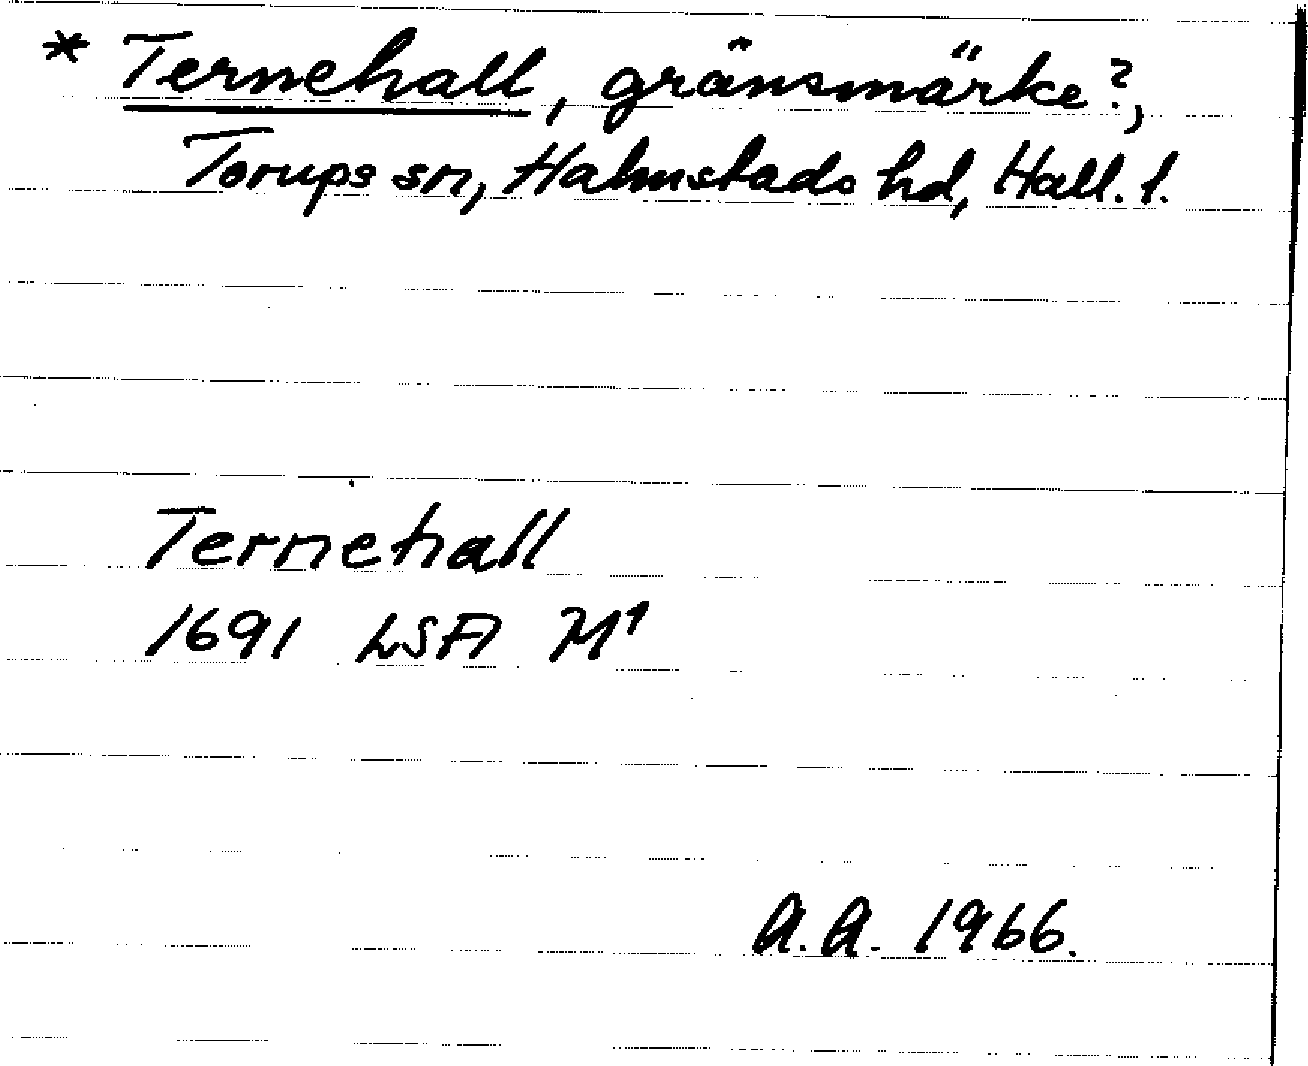 * Ternehall, gränsmärke?,
Torups sn, Halmstads hd, Hall. l.
Ternehall
1691 LSA M1
A.A. 1966.